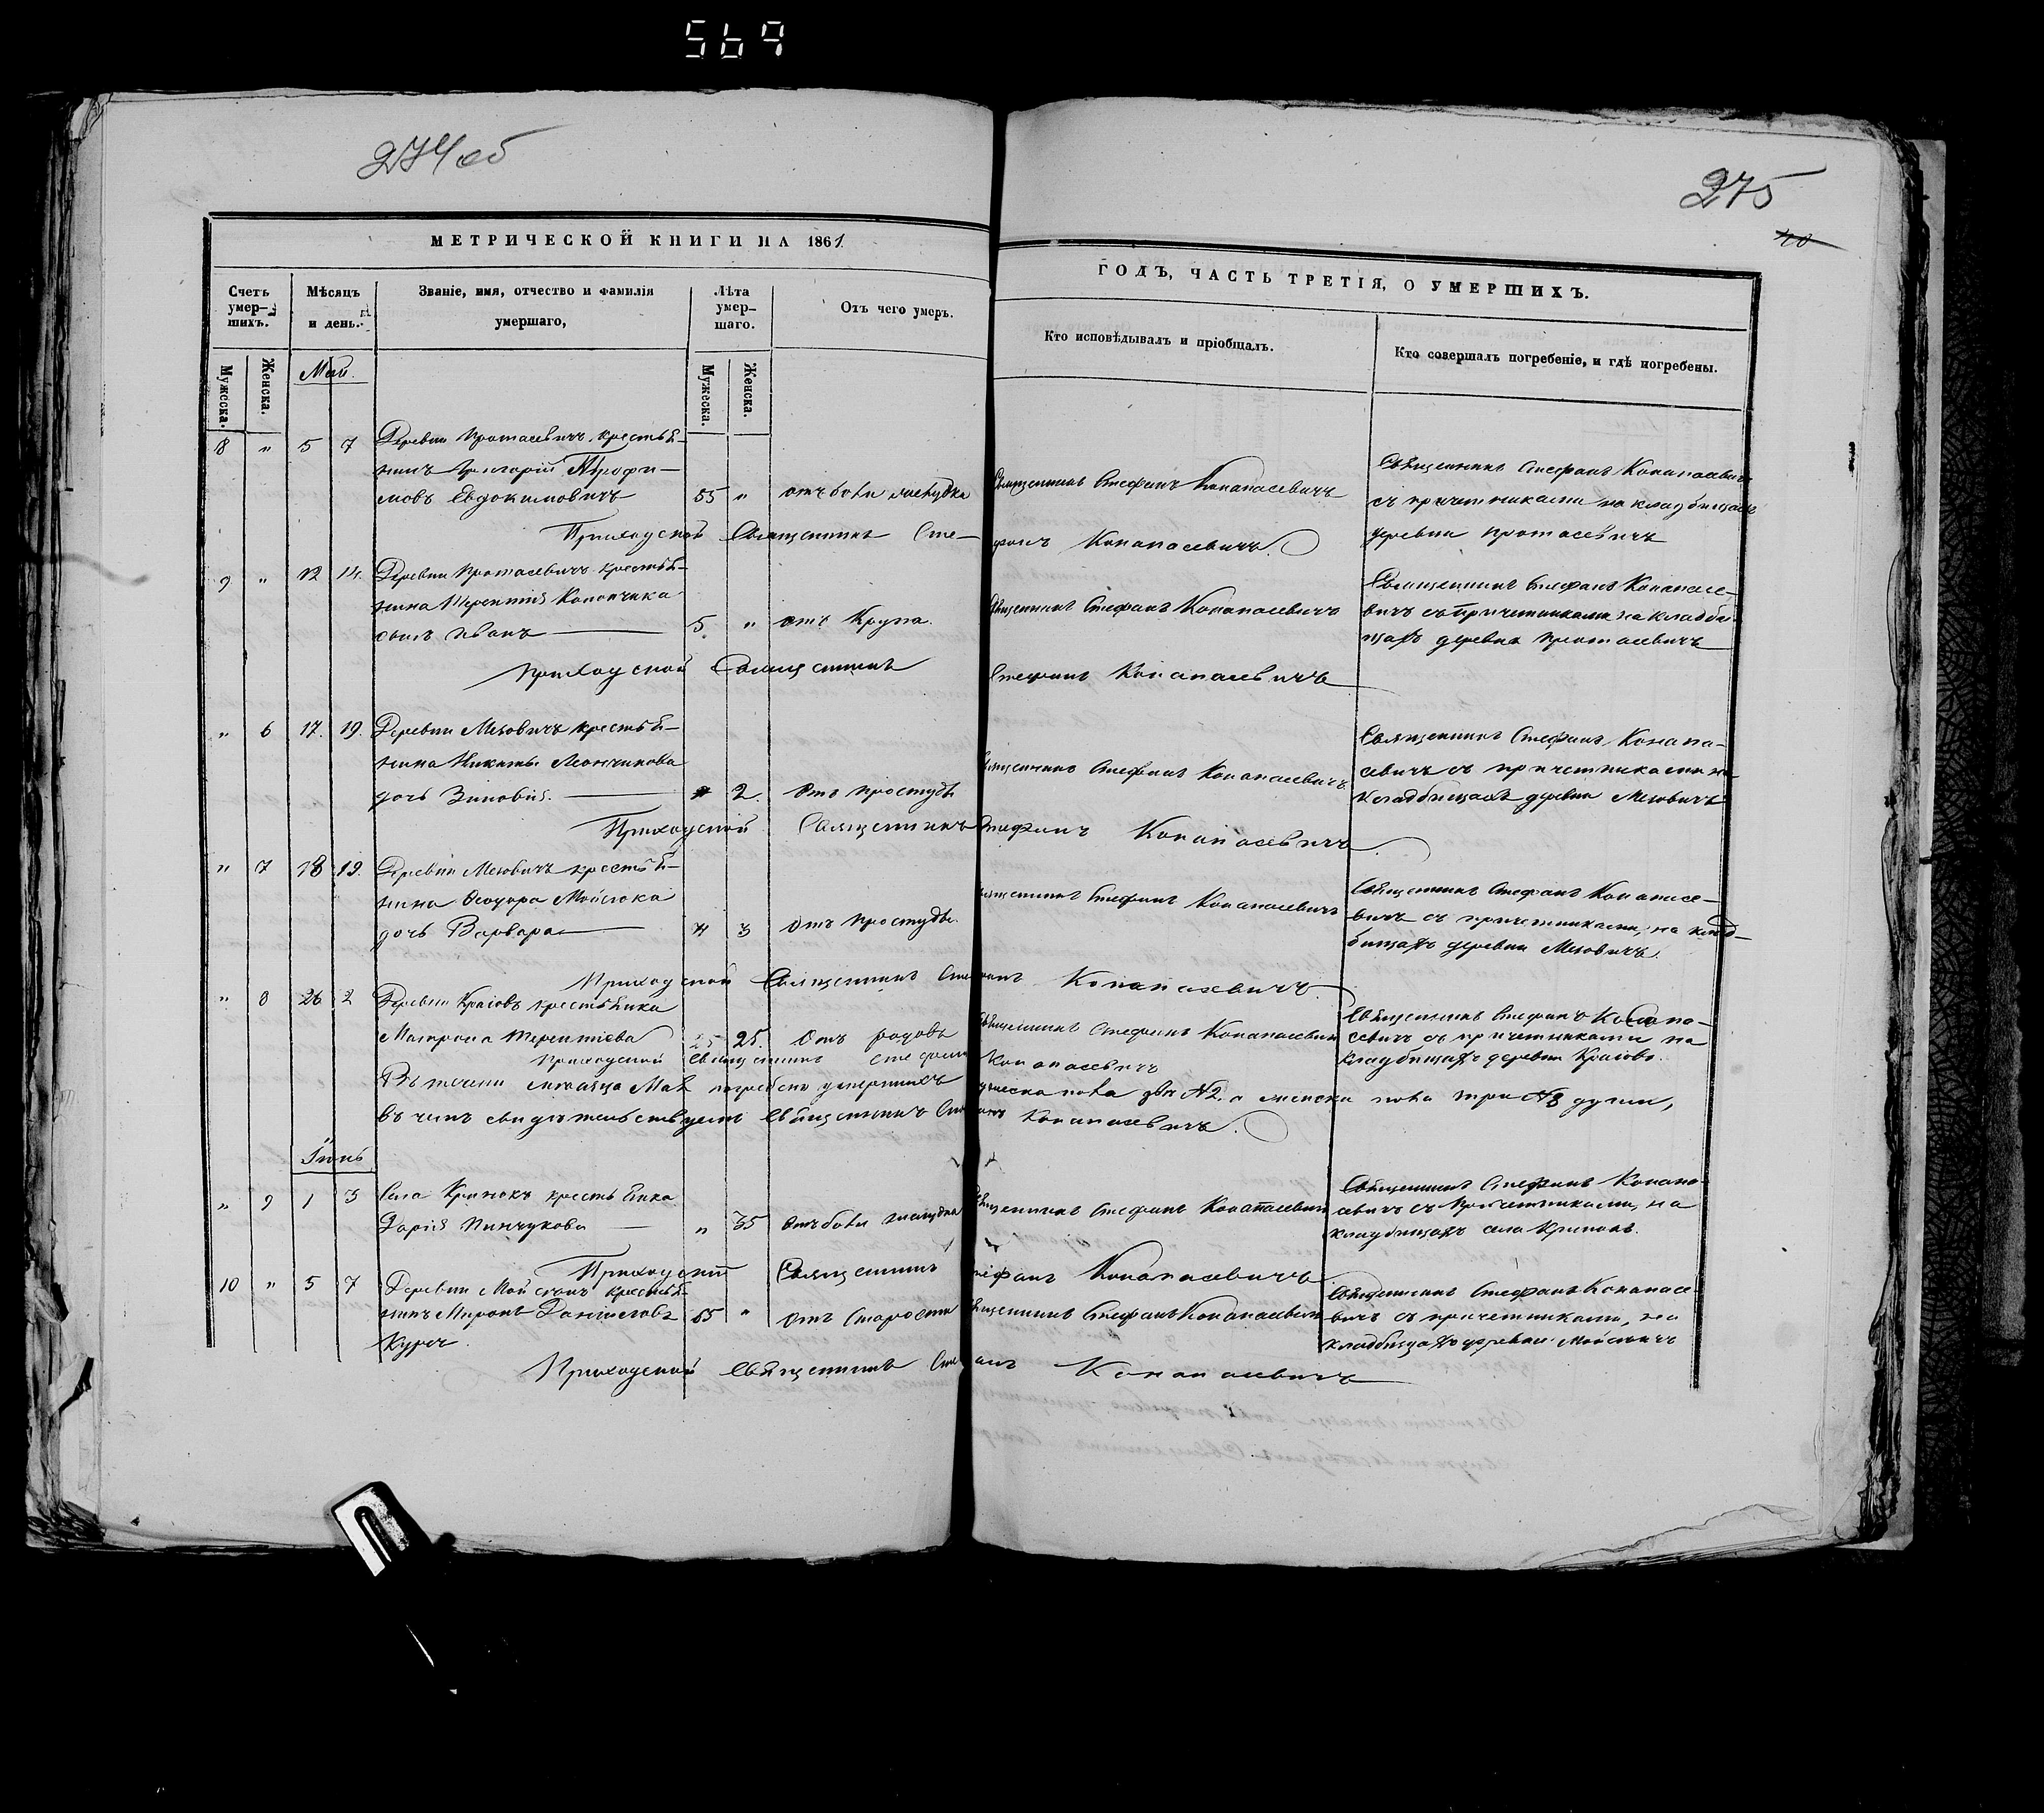 569
274об
275
40
МЕТРИЧЕСКОЙ КНИГИ НА 1861
ГОДЪ, ЧАСТЬ ТРЕТІЯ, О УМЕРШИХЪ.
Счетъ умер-шихъ.
Мѣсяцъ и день.
Званіе, имя, отчество и фамилія умершаго,
Лѣта умер-шаго.
Отъ чего умеръ.
Кто исповѣдывалъ и пріобщалъ.
Кто совершалъ погребеніе, и гдѣ погребены.
Мужеска.
Женска.
Май.
Мужеска.
Женска.
8 " 5 7 Деревни Протасевичъ крестья-
нинъ Григорій Трофи-
мовъ Евдокимовичъ 55 " отъ боли желудка Священникъ Стефанъ Конапасевичъ
Священникъ Стефанъ Конапасевичъ
съ причетниками на кладбищахъ
деревни Протасевичъ
Приходской Священникъ Стефанъ Конапасевичъ.
9 " 12 14. Деревни Протасевичъ крестья-
нина Терентія Конончика
сынъ Иванъ 5. " отъ Крупа. Священникъ Стефанъ Конапасевичъ
Священникъ Стефанъ Конапасе-
вичъ съ причетниками на кладби-
щахъ деревни Протасевичъ
Приходской Священникъ Стефанъ Конапасевичъ
" 6 17. 19. Деревни Мезовичъ крестья-
нина Никиты Леончикова
дочь Зиновія. 2. Отъ простуды Священникъ Стефанъ Конапасевичъ
Священникъ Стефанъ Конапа-
севичъ съ причетниками на
кладбищахъ деревни Мезовичъ
Приходской Священникъ Стефанъ Конапасевичъ.
" 7 18 19. Деревни Мезовичъ крестья-
нина Ѳеодора Мойсюка
дочь Варвара 3 Отъ простуды. Священникъ Стефанъ Конапасевичъ
Священникъ Стефанъ Конапасе-
вичъ съ причетниками, на клад-
бищахъ деревни Мезовичъ.
Приходской Священникъ Стефанъ Конапасевичъ.
" 8 26 2 Деревни Краговъ крестьянка
Матрона Терентіева 25. Отъ родовъ Священникъ Стефанъ Конапасевичъ
Священникъ Стефанъ Конапа-
севичъ съ причетниками на
кладбищахъ деревни Краговъ.
Приходской Священникъ Стефанъ Конапасевичъ
Въ теченіи мѣсяца Мая погребено умершихъ мужеска пола два №2. а женска пола три №3 души,
въ чемъ свидѣтельствуетъ Священникъ Стефанъ Конапасевичъ.
Іюнь
" 9 1 3 Села Кринокъ крестьянка
Дарія Пинчукова " 35 Отъ боли желудка Священникъ Стефанъ Конапасевичъ
Священникъ Стефанъ Конапа-
севичъ съ Причетниками, на
кладбищахъ села Кринокъ.
Приходской Священникъ Стефанъ Конапасевичъ.
10 " 5 7 Деревни Мойсичъ крестья-
нинъ Миронъ Даниловъ 65 " Отъ Старости Священникъ Стефанъ Конапасевичъ
Курсъ.
Священникъ Стефанъ Конапасе-
вичъ съ причетниками, на
кладбищахъ деревни Мойсичъ
Приходской Священникъ Стефанъ Конапасевичъ